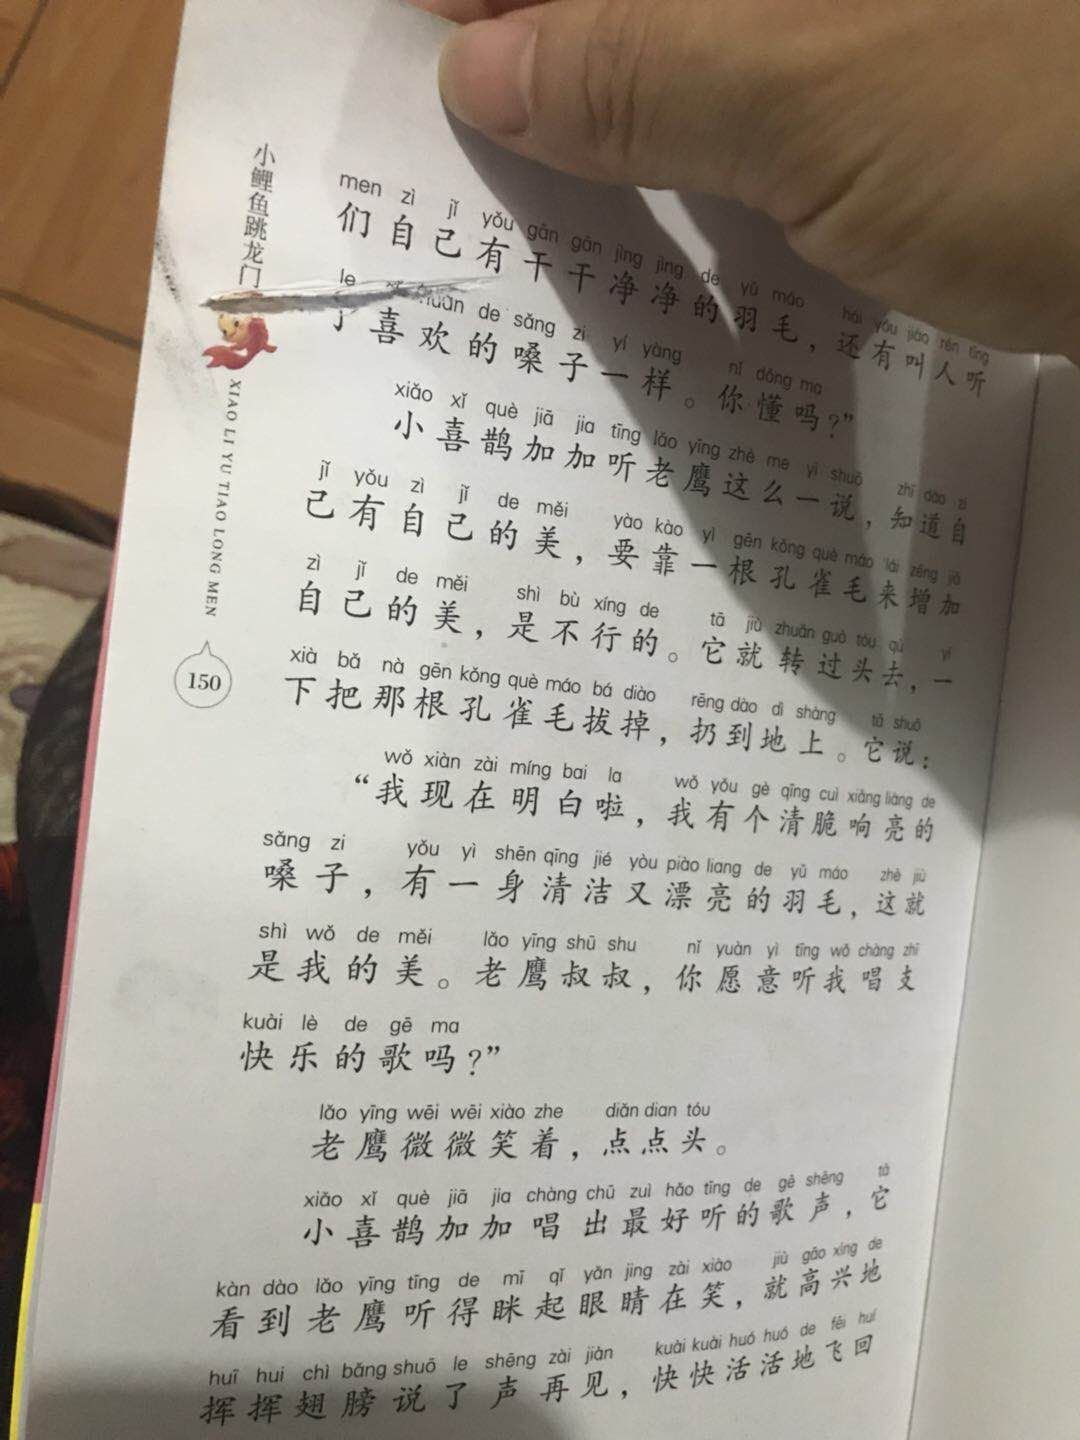 小鲤鱼跳龙门
XIAO LI YU TIAO LONG MEN
150
men zì jǐ yǒu gān gān jìng jìng de yǔ máo hái yǒu jiào rén tīng
们自己有干干净净的羽毛，还有叫人听
le huān de sǎng zi yí yàng nǐ dǒng ma
了喜欢的嗓子一样。你懂吗？”
xiǎo xǐ què jiā jia tīng lǎo yīng zhè me yì shuō zhī dào zì
小喜鹊加加听老鹰这么一说，知道自
jǐ yǒu zì jǐ de měi yào kào yì gēn kǒng què máo lái zēng jiā
己有自己的美，要靠一根孔雀毛来增加
zì jǐ de měi shì bù xíng de tā jiù zhuǎn guò tóu qù yí
自己的美，是不行的。它就转过头去，一
xià bǎ nà gēn kǒng què máo bá diào rēng dào dì shàng tā shuō
下把那根孔雀毛拔掉，扔到地上。它说：
wǒ xiàn zài míng bai la wǒ yǒu gè qīng cuì xiǎng liàng de
“我现在明白啦，我有个清脆响亮的
sǎng zi yǒu yì shēn qīng jié yòu piào liang de yǔ máo zhè jiù
嗓子，有一身清洁又漂亮的羽毛，这就
shì wǒ de měi lǎo yīng shū shu nǐ yuàn yì tīng wǒ chàng zhī
是我的美。老鹰叔叔，你愿意听我唱支
kuài lè de gē ma
快乐的歌吗？”
lǎo yīng wēi wēi xiào zhe diǎn dian tóu
老鹰微微笑着，点点头。
xiǎo xǐ què jiā jia chàng chū zuì hǎo tīng de gē shēng tā
小喜鹊加加唱出最好听的歌声，它
kàn dào lǎo yīng tīng de mī qǐ yǎn jing zài xiào jiù gāo xìng de
看到老鹰听得眯起眼睛在笑，就高兴地
huī hui chì bǎng shuō le shēng zài jiàn kuài kuài huó huó de fēi huí
挥挥翅膀说了声再见，快快活活地飞回